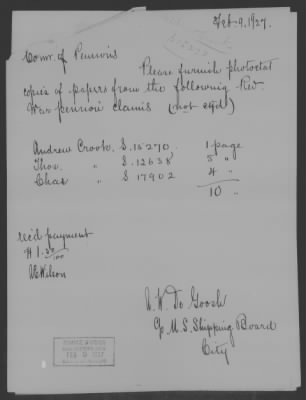 Feb-9.1927.
Comr. of Pensions
Please furnish photostat
copies of papers from the following Rev.
War pension claims (not ctfd)
Andrew Crook, S. 15270, 1 page
Thos. " S. 12638 5 "
Chas " S 17902 4 "
10 "
rec'd payment
$1.
Wilson
U.S. Shipping Board
City
FEB 9 1927